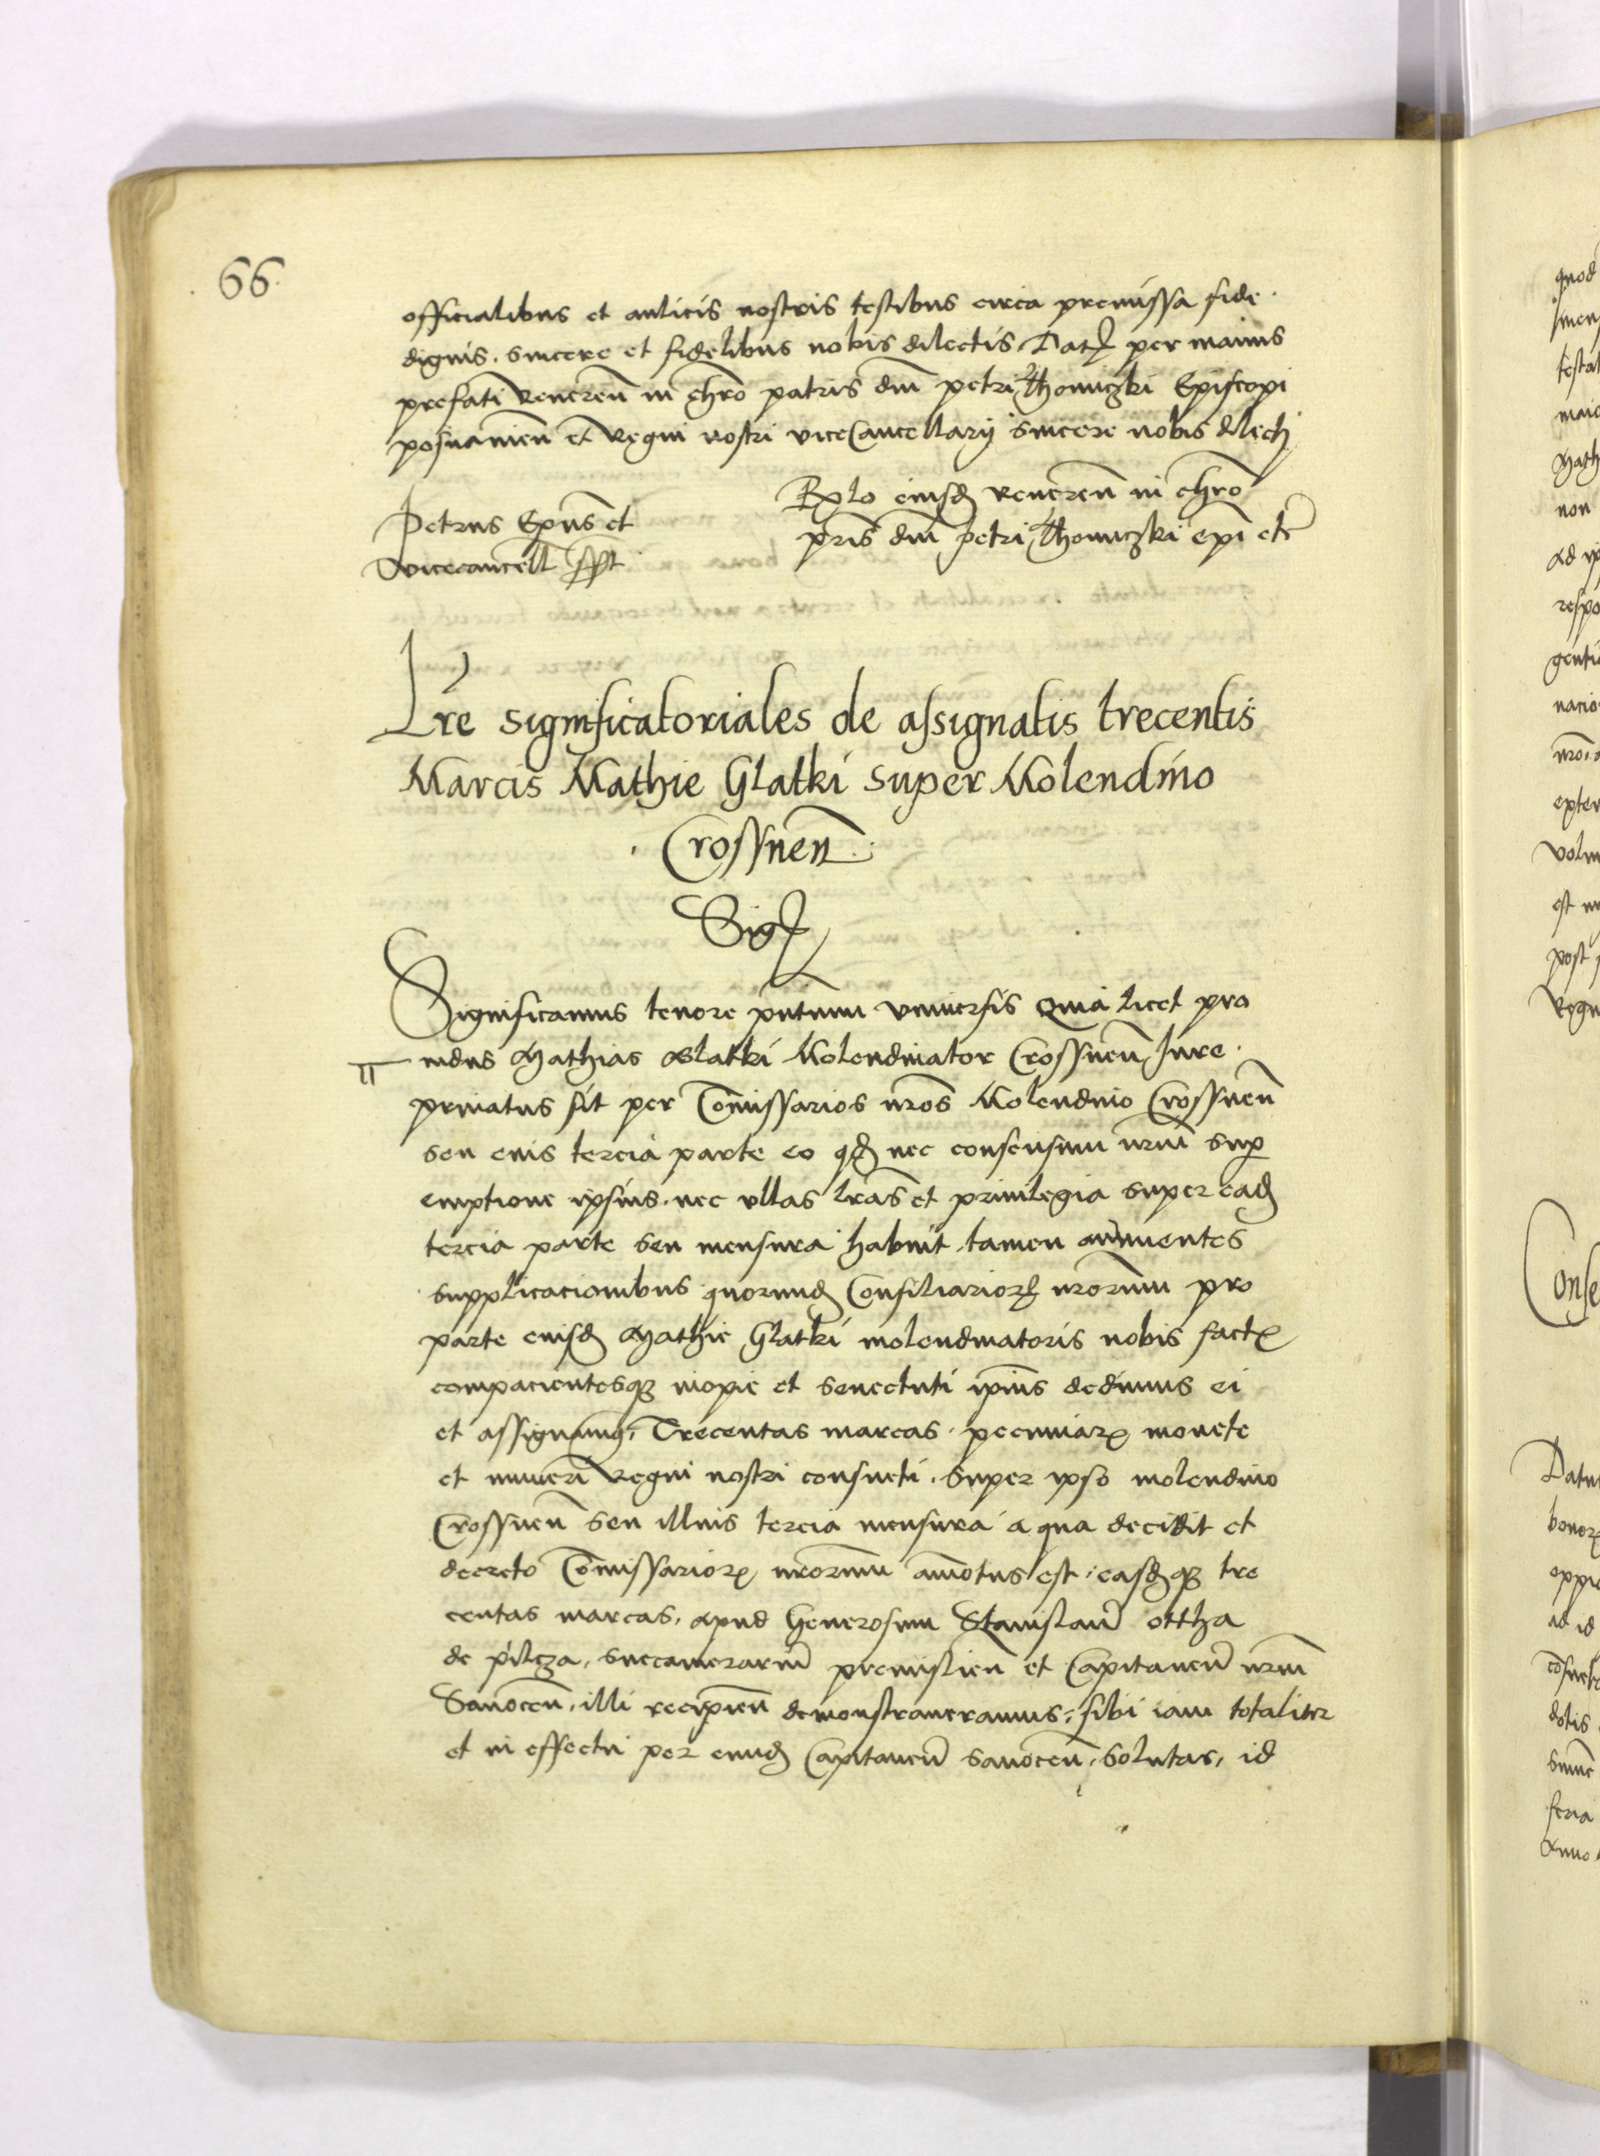 66
officialibus et aulicis nostris testibus circa premissa fide
dignis. sincere et fidelibus nobis dilectis. Dat per manus
prefati Reveren in chro patris dni petri Thomiczki Episcopi
posnanien et Regni nostri viceCancellarij sincere nobis dilecti
Petrus Epus et
vicecancell sspt
Relo eiusd Reveren in chro
pris dni petri Thomiczki epi etc
Lre significatoriales de assignatis trecentis
Marcis Mathie Glatki super Molendino
Crossnen
Sigt
Significamus tenore pntium vniuersis Quia licet pro
uidus Mathias Glatki Molendinator Crossnen Iure
priuatus sit per Comissarios nros Molendino Crossnen
seu eius tercia parte eo qd nec consensum nrum sup
emptione ipsius. nec vllas lras et priuilegia super ead
tercia parte seu mensura habuit. tamen annuentes
supplicacionibus quorund Consiliarior nrorum pro
parte eiusd Mathie Glatki molendinatoris nobis fact
compacientesq inopie et senectuti ipius dedimus ei
et assignauimus. Trecentas marcas pecuniar monete
et numeri Regni nostri consueti. super ipso molendino
Crossnen seu illius tercia mensura a qua decidit et
decreto Comissarior nrorum amotus est. easdq tre
centas marcas. apud Generosum Stanislaum ottha
de pilcza. succamerariu premislien et Capitaneu nrum
Sanocen. illi recipien demonstraueramus. sibi iam totaliter
et in effectu per eund Capitaneu Sanocen. solutas. id